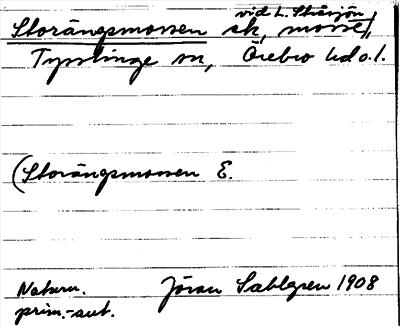 vid L. Stråsjön
Storängsmossen sk, mosse,
Tysslinge sn, Örebro hd o.l.
(Storängsmossen E.
Naturn. Jöran Sahlgren 1908
prim.-aut.